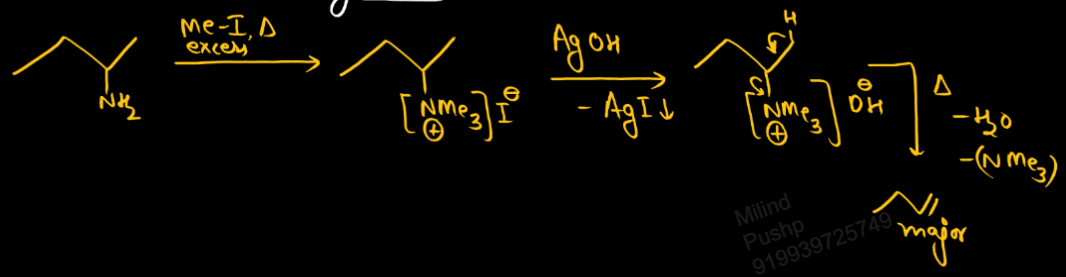 Me-I, Δ
excess
NH2
[NMe3]I⊖
⊕
AgOH
- AgI↓
H
[NMe3]OH⊖
⊕
Δ
-H2O
-(NMe3)
major
Milind
Pushp
919939725749